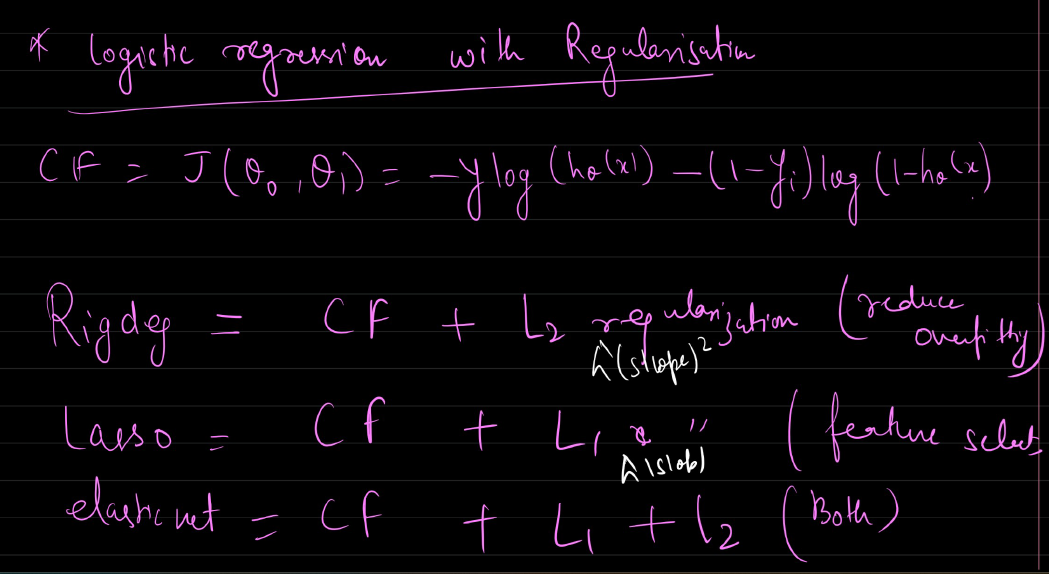 * logistic regression with Regularisation
CF = J(θ₀, θ₁) = -y log (hθ(x)) - (1 - yᵢ) log (1 - hθ(x)
Rigdeg = CF + L₂ regularization (reduce overfitting)
λ(slope)²
Lasso = CF + L₁ " (feature select
λ|slob|
elastic net = CF + L₁ + L₂ (Both)